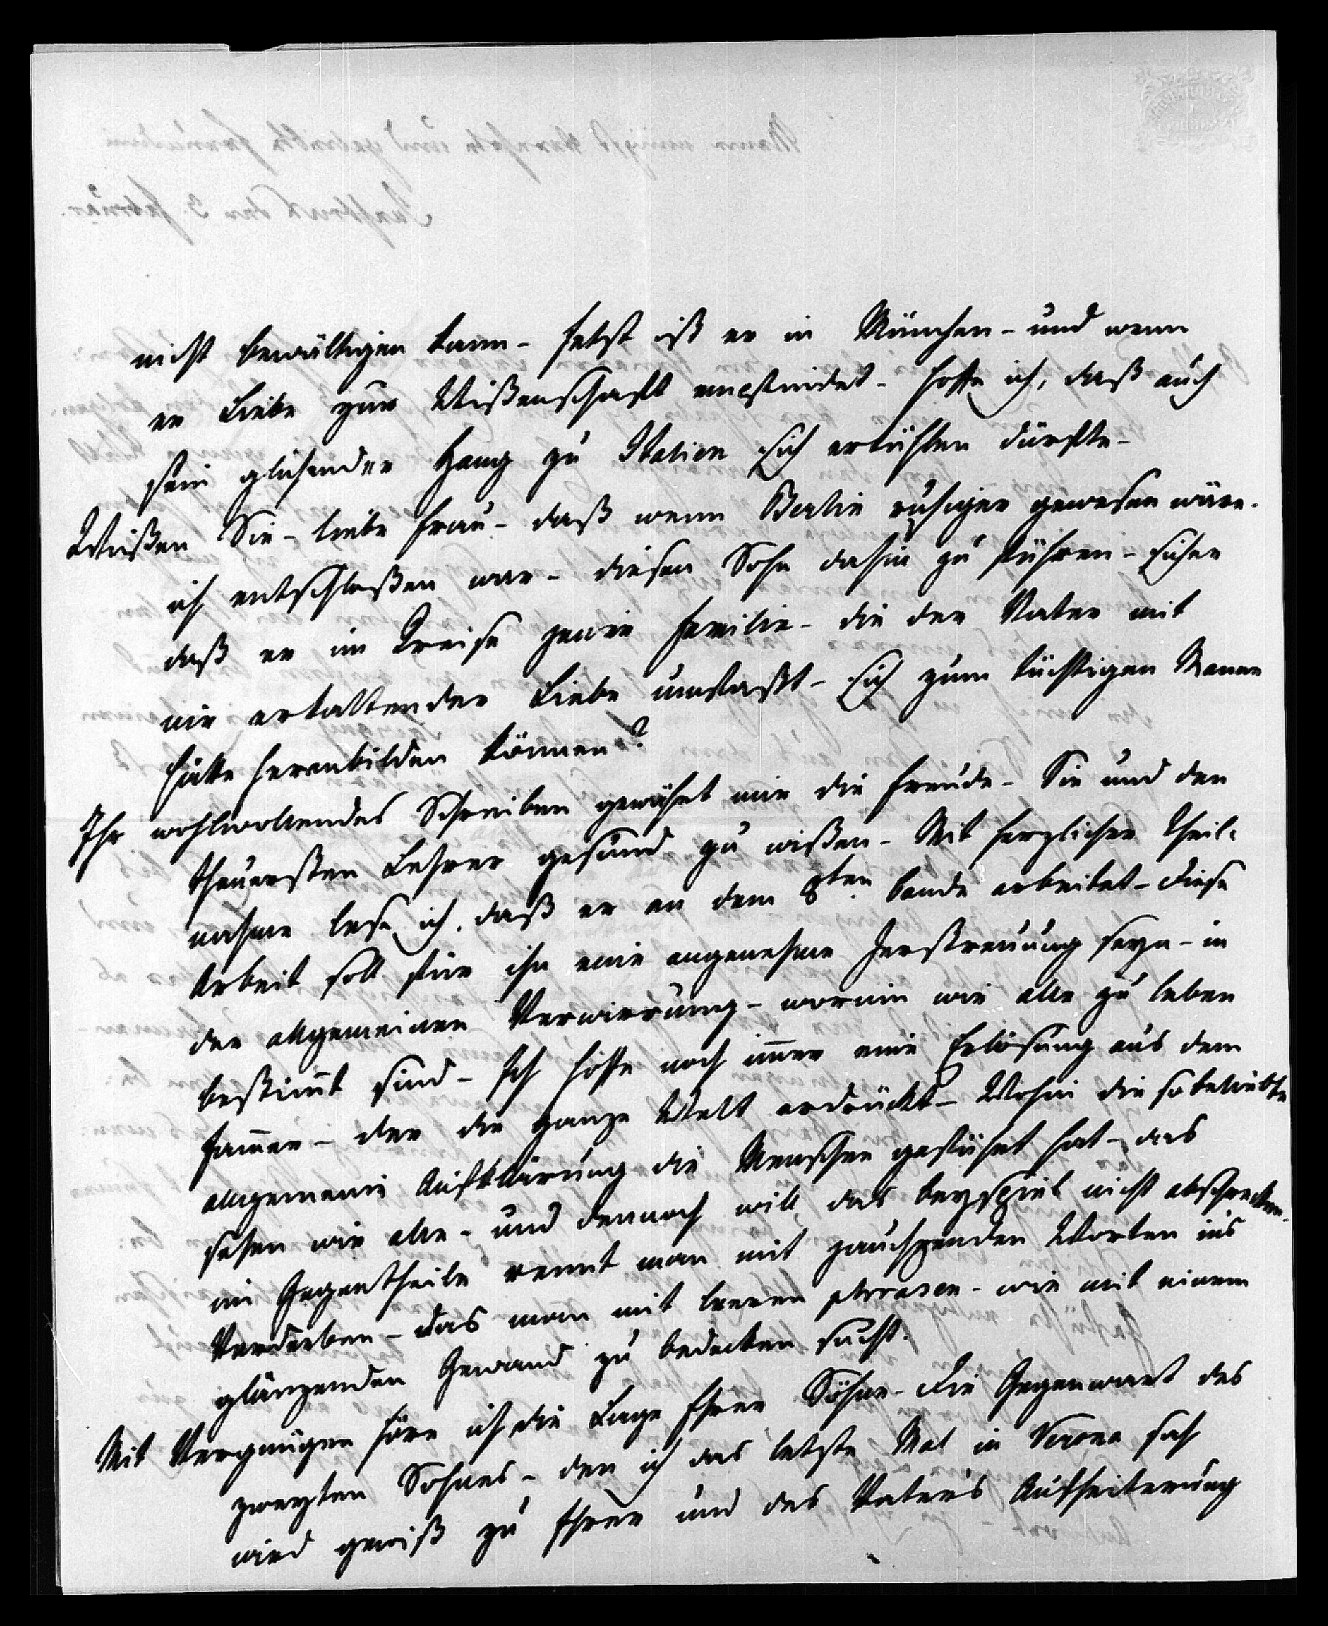 nicht bewältigen kann - Jetzt ist er in München - und wenn
er Liebe zur Wißenschaft empfindet - hoffe ich, daß auch
sein glühender Hang zu Italien sich erkühlen dürfte -
Wißen Sie - liebe Frau - daß wenn Berlin ruhiger gewesen wäre -
ich entschloßen war - diesen Sohn dahin zu führen - sicher
daß er im Kreise jener Familie - die der Vater mit
nie erkaltender Liebe umfaßt - sich zum tüchtigen Manne
hätte heranbilden können?
Ihr wohlwollendes Schreiben gewährt mir die Freude - Sie und den
theuersten Lehrer gesund zu wißen - Mit herzlicher Theil-
nahme lese ich, daß er an dem 8ten. Bande arbeitet - diese
Arbeit soll für ihn eine angenehme Zerstreuung seyn - in
der allgemeinen Verwirrung - worin wir alle zu leben
bestimt sind - Ich hoffe noch imer eine Erlösung aus dem
Jamer - der die ganze Welt erdrückt - Wohin die so beliebte
allgemeine Aufklärung die Menschen geführt hat - das
sehen wir alle - und dennoch will das Beyspiel nicht abschrecken -
im Gegentheile rennt man mit jauchzenden Worten ins
Verderben - das man mit leeren phrasen - wie mit einem
glänzenden Gewand zu bedecken sucht.
Mit Vergnügen höre ich die Lage Ihrer Söhne - die Gegenwart des
zweyten Sohnes - den ich das letzte Mal in Verona sah
wird gewiß zu Ihrer und des Vaters Aufheiterung